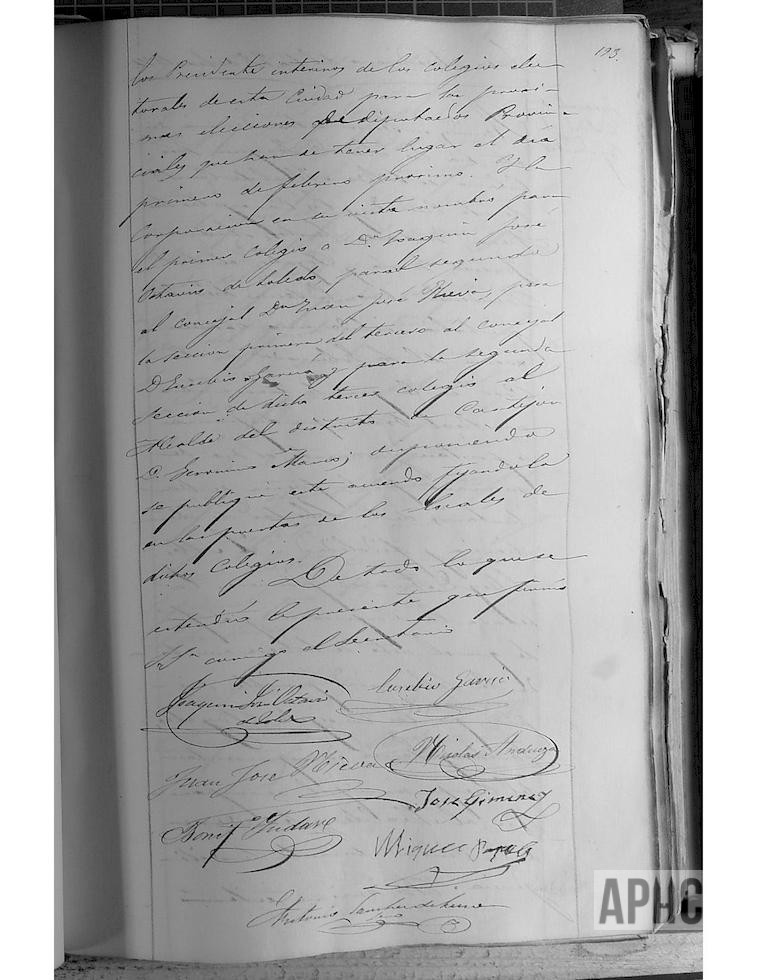 193.
los Presidente interinos de los colegios elec-
torales de esta Ciudad para las procsi-
mas elecciones de diputados Provin-
ciales que han de tener lugar el dia
primero de febrero procsimo. Y la
Corporacion en su vista nombró para
el primer colegio a Dn Joaquin José
Octavio de Toledo para el segundo
al concejal Dn Juan José Nieva, para
la seccion primera del tercero al concejal
D. Eusebio Garcia y para la segunda
seccion de dicho tercer colegio al
Alcalde del distrito de Castejon
D. Geronimo disponiendo
se publique este acuerdo fijandolo
en las puertas de los locales de
dichos Colegios. De todo lo que se
estendió la presente que firman
conmigo el Secretario
Joaquin José Octavio
de Toledo
Eusebio Garcia
Juan José Nieva
Nicolas Andueza
Jose Gimenez
Miguel
Antonio
APHC